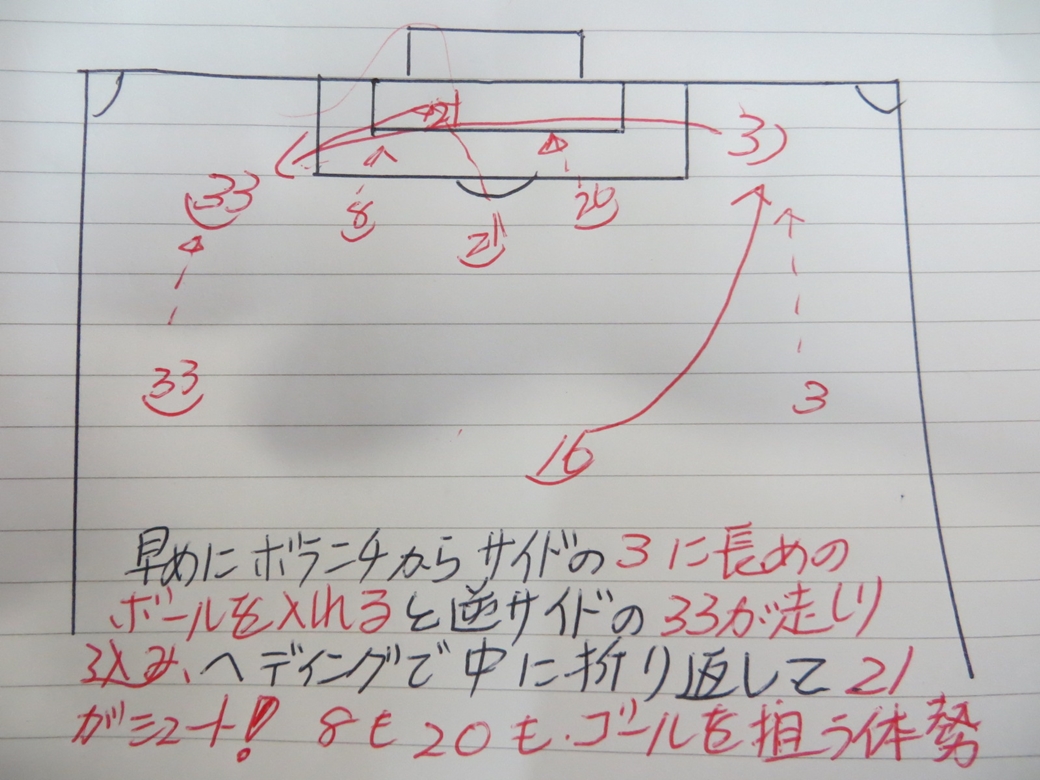 21
3
33
8
20
21
33
3
16
早めにボランチからサイドの3に長めの
ボールを入れると逆サイドの33が走り
込み、ヘディングで中に折り返して21
がシュート! 8も20も.ゴールを狙う体勢